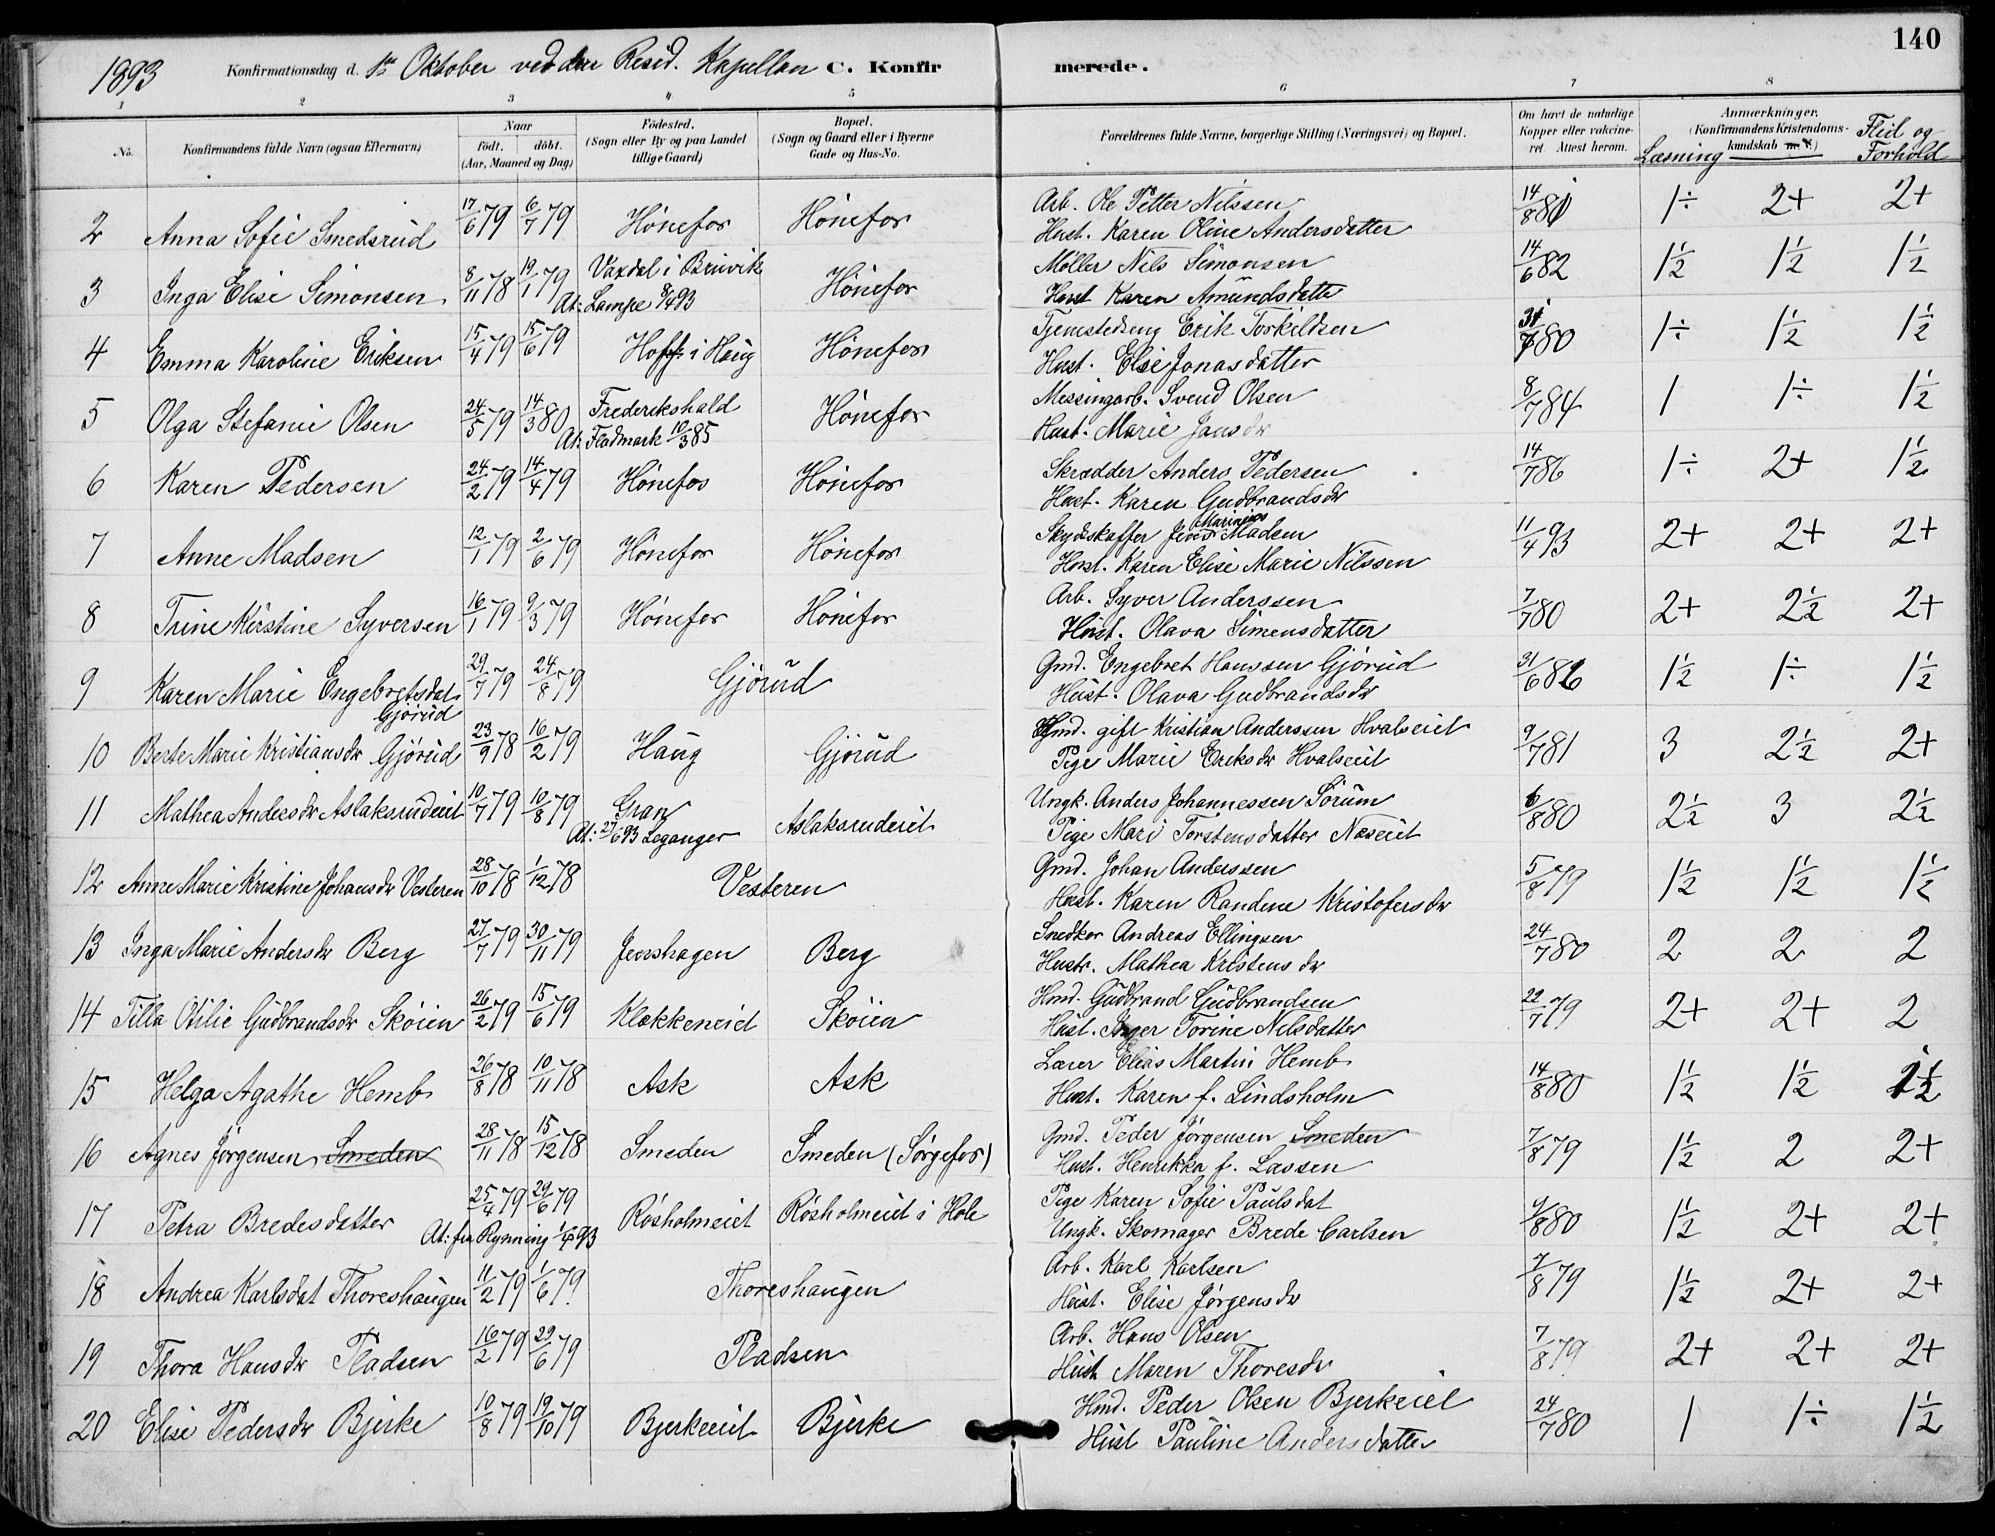 140
1893 Konfirmationsdag d. 1ste Oktober ved den Resid. Kapellan C. Konfirmerede.
1 2 3 4 5 6 7 8
No. Konfirmandens fulde Navn (ogsaa Efternavn) Naar født. døbt. (Aar, Maaned og Dag) Fødested. (Sogn eller By og paa Landet tillige Gaard) Bopæl. (Sogn og Gaard eller i Byerne Gade og Hus-No. Forældrenes fulde Navne, borgerlige Stilling (Næringsvei) og Bopæl. Om havt de naturlige Kopper eller vakcineret. Attest herom. Anmærkninger. (Konfirmandens Kristendomskundskab m. v.) Læsning Flid og Forhold
2 Anna Sofie Smedsrud 17/6 79 6/7 79 Hönefos Hönefos Arb. Ole Petter Nilssen 14/8 81 1÷ 2+ 2+
Hust. Karen Oline Andersdatter
3 Inga Elise Simonsen 8/11 78 19/1 79 Vaxdal i Bruvik Hönefos Möller Nils Simonsen 14/6 82 1½ 1½ 1½
At: Lampe 8/4 93 Hust Karen Amundsdatter
4 Emma Karoline Eriksen 15/4 79 15/6 79 Hoff i Haug Hönefos Tjenestedreng Erik Torkildsen 31/7 80 1÷ 1½ 1½
Hust. Elise Jonasdatter
5 Olga Stefanie Olsen 24/5 79 14/3 80 Frederikshald Hönefos Messingarb. Svend Olsen 8/7 84 1 1÷ 1½
At: Fladmark 10/3 85 Hust. Marie Jansdr
6 Karen Pedersen 24/2 79 14/4 79 Hönefos Hönefos Skrædder Anders Pedersen 14/7 86 1÷ 2+ 1½
Hust. Karen Gudbrandsdr
7 Anne Madsen 12/1 79 2/6 79 Hönefos Hönefos Skydsskaffer Jens Marinius Madsen 11/4 93 2+ 2+ 2+
Hust. Karen Elise Marie Nilssen
8 Trine Kirstine Syversen 16/1 79 9/3 79 Hönefos Hönefos Arb. Syver Anderssen 7/7 80 2+ 2½ 2+
Hust. Olava Simensdatter
9 Karen Marie Engebretsdat Gjörud 29/7 79 24/8 79 Gjörud Gmd. Engebret Hanssen Gjörud 31/6 82 1½ 1÷ 1½
Hust. Olava Gudbrandsdr
10 Berte Marie Kristiansdr Gjörud 23/9 78 16/2 79 Haug Gjörud Gmd. gift Kristian Anderssen Hvalseiet 9/7 81 3 2½ 2+
Pige Marie Eriksdr Hvalseiet
11 Mathea Andersdr Aslaksrudeiet 10/7 79 10/8 79 Gran Aslaksrudeiet Ungk. Anders Johannessen Sörum 6/8 80 2½ 3 2½
At: 27/6 93 Leganger Pige Mari Torstensdatter Næseiet
12 Anne Marie Kristine Johansdr Vesteren 28/10 78 1/12 78 Vesteren Gmd. Johan Anderssen 5/8 79 1½ 1½ 1½
Hust. Karen Randine Kristofersdr
13 Inga Marie Andersdr Berg 27/7 79 30/11 79 Jenshagen Berg Snedker Andreas Ellingsen 24/7 80 2 2 2
Hustr. Mathea Kristensdr
14 Tilla Otilie Gudbrandsdr Sköien 26/2 79 15/6 79 Klækkeneid Sköien Hmd. Gudbrand Gudbrandsen 22/7 79 2+ 2+ 2
Hust. Inger Torine Nilsdatter
15 Helga Agathe Hemb 26/8 78 10/11 78 Ask Ask Lærer Elias Martin Hemb 14/8 80 1½ 1½ 1½
Hust. Karen f. Lindsholm
16 Agnes Jörgensen Smeden 28/11 78 15/12 78 Smeden Smeden (Sörgefos) Gmd. Peder Jörgensen Smeden 7/8 79 1½ 2 2+
Hust. Henrikka f. Lassen
17 Petra Bredesdatter 25/4 79 29/6 79 Rösholmeiet Rösholmeiet i Hole Pige Karen Sofie Paulsdat 9/8 80 1½ 2+ 2+
At: fra Rynning 1/4 93 Ungk. Skomager Brede Carlsen
18 Andrea Karlsdat Thoreshaugen 11/2 79 1/6 79 Thoreshaugen Arb. Karl Karlsen 7/8 79 1½ 2+ 2+
Hust. Elise Jörgensdr
19 Thora Hansdr Pladsen 16/2 79 29/6 79 Pladsen Arb. Hans Olsen 7/8 79 2+ 2+ 2+
Hust Maren Thoresdr
20 Elise Pedersdr Bjerke 10/8 79 19/10 79 Bjerkeeiet Bjerke Hmd. Peder Olsen Bjerkeeiet 24/7 80 1 1÷ 1½
Hust Pauline Andersdatter